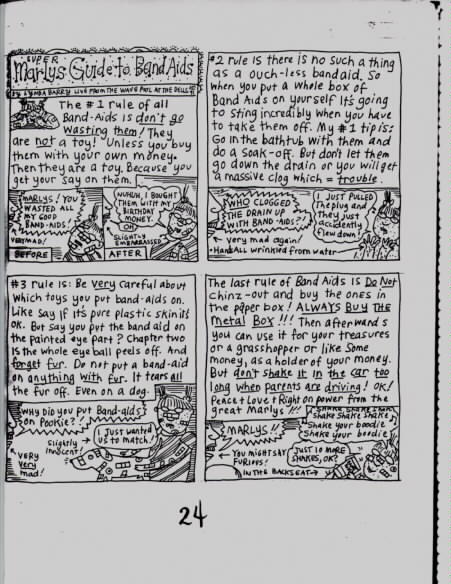 SUPER
Marlys Guide to Band Aids
BY LYNDA BARRY LIVE FROM THE WAVE POOL AT THE DELLS
The #1 rule of all
Band-Aids is don't go
wasting them! They
are not a toy! Unless you buy
them with your own money.
Then they are a toy. Because you
get your say on them.
MARLYS! YOU
WASTED ALL
MY GOOD
BAND-AIDS!
VERY MAD!
BEFORE
NUHUH, I BOUGHT
THEM WITH MY
BIRTHDAY
MONEY.
OH
SLIGHTLY
EMBARRASSED
AFTER
#2 rule is there is no such a thing
as a ouch-less bandaid. So
when you put a whole box of
Band Aids on yourself it's going
to sting incredibly when you have
to take them off. My #1 tip is:
Go in the bathtub with them and
do a soak-off. But don't let them
go down the drain or you will get
a massive clog which = trouble.
WHO CLOGGED
THE DRAIN UP
WITH BAND-AIDS?!
very mad again!
Hand ALL wrinkled from water
I JUST PULLED
The plug and
They just
accidently
flew down!
#3 rule is: Be very careful about
which toys you put band-aids on.
Like say if it's pure plastic skin it's
OK. But say you put the band aid on
the painted eye part? Chapter two
is the whole eye ball peels off. And
forget fur. Do not put a band-aid
on anything with fur. It tears all
the fur off. Even on a dog.
WHY DID YOU PUT Band-aids
on POOKIE?
VERY
very
mad!
Slightly
innocent!
I Just wanted
us to match!
The last rule of Band Aids is Do Not
chinz-out and buy the ones in
the paper box! ALWAYS BUY THE
Metal Box!!! Then afterwards
you can use it for your treasures
or a grasshopper or like some
money, as a holder of your money.
But don't shake it in the car too
long when parents are driving! OK!
Peace + Love + Right on power from the
great Marlys!!!
MARLYS!!
YOU MIGHT SAY
FURIOUS!
IN THE BACKSEAT
Shake Shake Shake
Shake your boodie
Shake your boodie
JUST 10 MORE
SHAKES, OK?
24